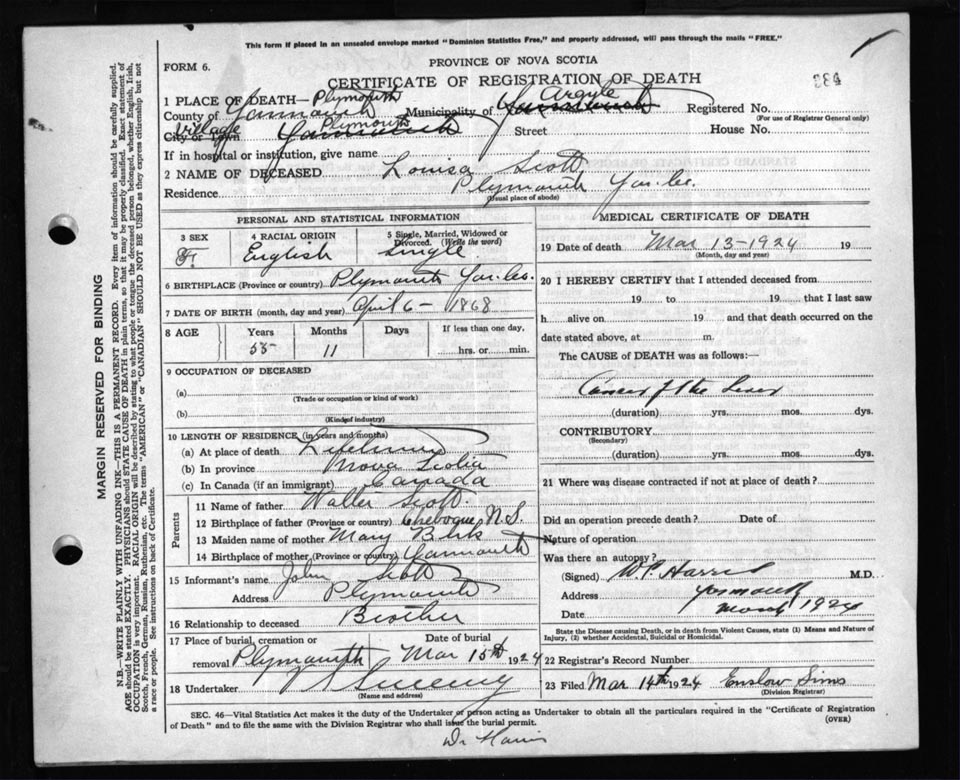 This form if placed in an unsealed envelope marked "Dominion Statistics Free," and properly addressed, will pass through the mails "FREE."
FORM 6.
PROVINCE OF NOVA SCOTIA
CERTIFICATE OF REGISTRATION OF DEATH
1 PLACE OF DEATH— Plymouth
County of Yarmouth Municipality of Yarmouth Argyle Registered No.
(For use of Registrar General only)
Village City or Town Yarmouth Plymouth Street House No.
If in hospital or institution, give name
2 NAME OF DECEASED Louisa Scott
Residence Plymouth Yar. Co.
(Usual place of abode)
PERSONAL AND STATISTICAL INFORMATION
3 SEX 4 RACIAL ORIGIN 5 Single, Married, Widowed or Divorced. (Write the word)
F. English Single
6 BIRTHPLACE (Province or country) Plymouth Yar. Co.
7 DATE OF BIRTH (month, day and year) April 6 - 1868
8 AGE Years Months Days If less than one day,
55 11 hrs. or min.
9 OCCUPATION OF DECEASED
(a)
(Trade or occupation or kind of work)
(b)
(Kind of industry)
10 LENGTH OF RESIDENCE (in years and months)
(a) At place of death Lifetime
(b) In province Nova Scotia
(c) In Canada (if an immigrant) Canada
Parents
11 Name of father Walter Scott.
12 Birthplace of father (Province or country) Chebogue N.S.
13 Maiden name of mother Mary
14 Birthplace of mother (Province or country) Yarmouth
15 Informant's name John Scott
Address Plymouth
16 Relationship to deceased Brother
17 Place of burial, cremation or Date of burial
removal Plymouth Mar 15th 1924
18 Undertaker Sweeny
(Name and address)
MEDICAL CERTIFICATE OF DEATH
19 Date of death Mar 13 - 1924 19
(Month, day and year)
20 I HEREBY CERTIFY that I attended deceased from
19 to 19 that I last saw
h alive on 19 and that death occurred on the
date stated above, at m.
The CAUSE of DEATH was as follows:—
Cancer of the Liver
(duration) yrs. mos. dys.
CONTRIBUTORY
(Secondary)
(duration) yrs. mos. dys.
21 Where was disease contracted if not at place of death?
Did an operation precede death? Date of
Nature of operation
Was there an autopsy?
(Signed) W.P. Harris M.D.
Address Yarmouth
Date March 1924
State the Disease causing Death, or in death from Violent Causes, state (1) Means and Nature of
Injury, (2) whether Accidental, Suicidal or Homicidal.
22 Registrar's Record Number
23 Filed Mar 14th 1924 Enslow Sims
(Division Registrar)
SEC. 46—Vital Statistics Act makes it the duty of the Undertaker or person acting as Undertaker to obtain all the particulars required in the "Certificate of Registration
of Death" and to file the same with the Division Registrar who shall issue the burial permit.
(OVER)
Dr Harris
MARGIN RESERVED FOR BINDING
N.B.—WRITE PLAINLY WITH UNFADING INK—THIS IS A PERMANENT RECORD. Every item of information should be carefully supplied.
AGE should be stated EXACTLY. PHYSICIANS should STATE CAUSE OF DEATH in plain terms, so that it may be properly classified. Exact statement of
OCCUPATION is very important. RACIAL ORIGIN will be described by stating to what people or tongue the deceased person belonged, whether English, Irish,
Scotch, French, German, Russian, Ruthenian, etc. The terms "AMERICAN" or "CANADIAN" SHOULD NOT BE USED as they express citizenship but not
a race or people. See instructions on back of Certificate.